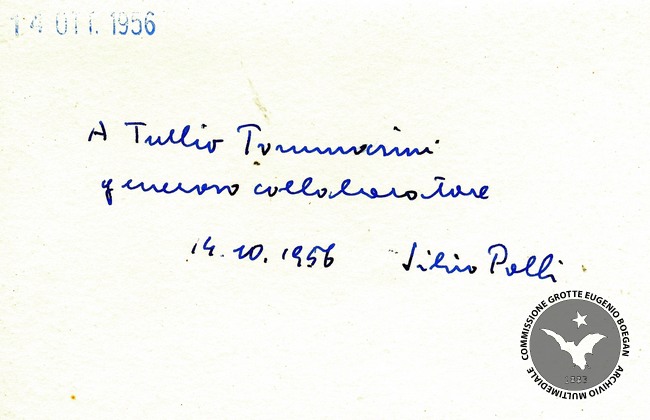 14 OTT. 1956
A Tullio Tommasini
generoso collaboratore
14.10.1956 Silvio Polli
COMMISSIONE GROTTE EUGENIO BOEGAN
ARCHIVIO MULTIMEDIALE
1883